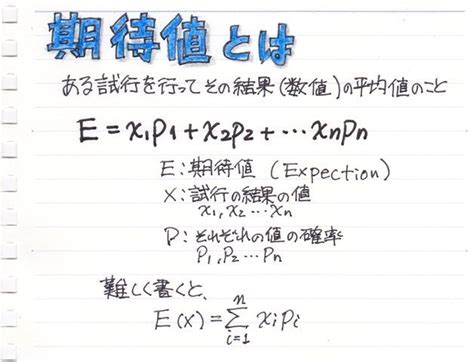 期待値とは
ある試行を行ってその結果(数値)の平均値のこと
E = x1p1 + x2p2 + … xnpn
E:期待値 (Expection)
X:試行の結果の値
x1, x2 … xn
P:それぞれの値の確率
P1, P2 … Pn
難しく書くと、
E(x) = Σ_{i=1}^{n} xipi